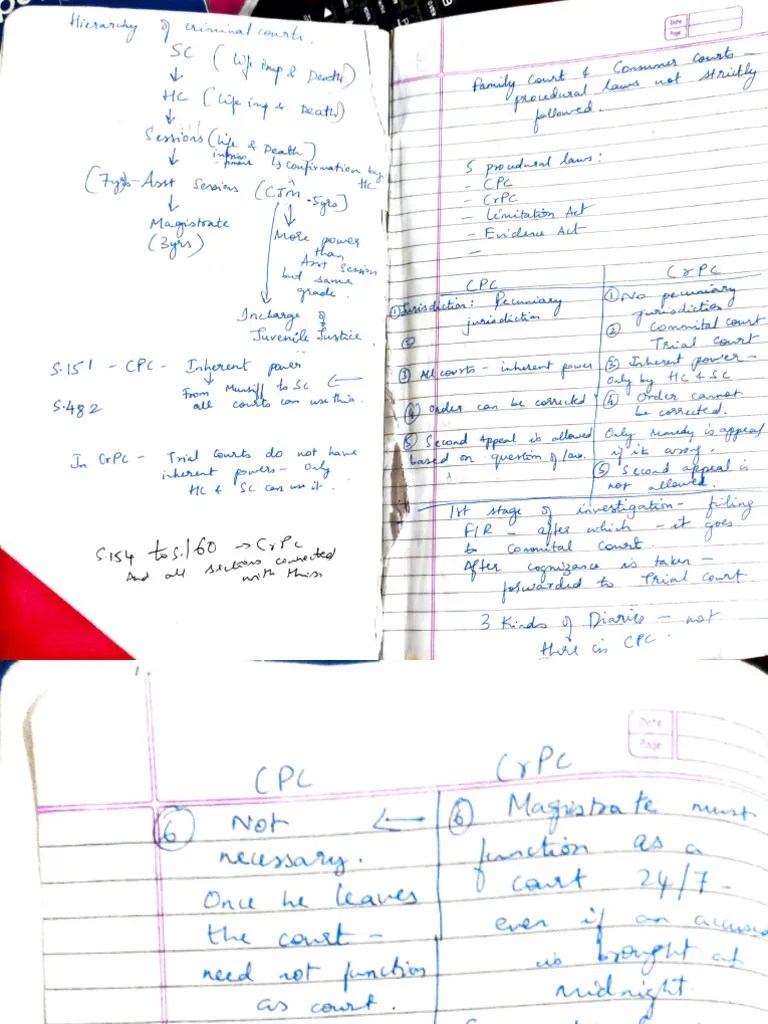 Hierarchy of criminal courts.
SC (Life imp & Death)
↓
HC (Life imp & Death)
↓
Sessions (Life & Death)
imprisonment ↳ confirmation by HC
↓
(7yrs- Asst Sessions (CJM - 5yrs)
↓ ↓
Magistrate
(3yrs)
More power
than
Asst Session
but same
grade.
Incharge of
Juvenile Justice
S.151 - CPC - Inherent power
↓ From Munsiff to SC ←
S.482 all courts can use this.
In CrPC - Trial Courts do not have
inherent powers - Only
HC & SC can use it.
S.154 to S.160 → CrPC
And all sections connected
with this
Date
Page
Family Court & Consumer Courts -
procedural laws not strictly
followed.
5 procedural laws:
- CPC
- CrPC
- Limitation Act
- Evidence Act
-
CPC
① Jurisdiction: Pecuniary
jurisdiction
②
③ All courts - inherent power
④ Order can be corrected
⑤ Second Appeal is allowed
based on question of law.
CrPC
① No pecuniary
jurisdiction
② Committal court
Trial court
③ Inherent power -
only by HC & SC
④ Order cannot
be corrected.
Only remedy is appeal
if it wrong.
⑤ Second appeal is
not allowed.
1st stage of investigation - filing
FIR - after which - it goes
to Committal Court.
After cognizance is taken -
forwarded to Trial court
3 Kinds of Diaries - not
there in CPC.
Date
Page
CPC
⑥ Not ←
necessary.
Once he leaves
the court -
need not function
as court.
CrPC
⑥ Magistrate must
function as a
court 24/7 -
even if an accused
is brought at
midnight.